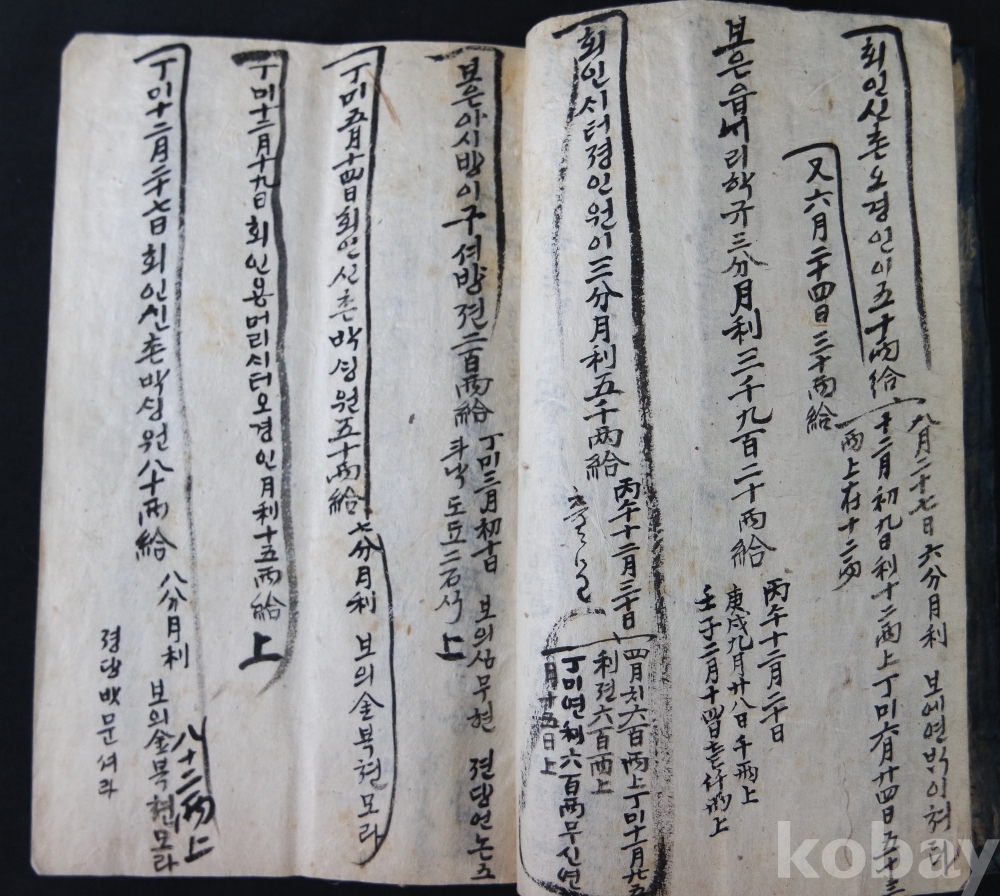 회인신촌오경인이五十兩給
八月二十七日六分月利 보에연박이쳐라
十二月初九日利十二兩上丁미六月廿四日五十三
兩上在十二兩
又六月二十四日三十兩給
보은읍내리학규三分月利三千九百二十兩給
丙午十二月二十日
庚戌九月廿八日千兩上
壬子二月十四日
회인시터경인원이三分月利五千兩給
丙午十二月三十日
四月치六百兩上丁미十月廿五
利젼六百兩上
丁미연利六百兩무신연
月十五日上
보은아시방이구셔방젼二百兩給
丁미三月初十日 보의심무현 젼당언논五
斗낙도도二石식 上
丁미五月十四日회인신촌박셩원五十兩給
七分月利 보의金복현모라
丁미十二月十九日회인용머리시터오경인月利十五兩給 上
丁미十二月二十七日회인신촌박셩원八十兩給
八分月利 보의金복현모라
八十二兩上
젼당밧문셔라
kobay